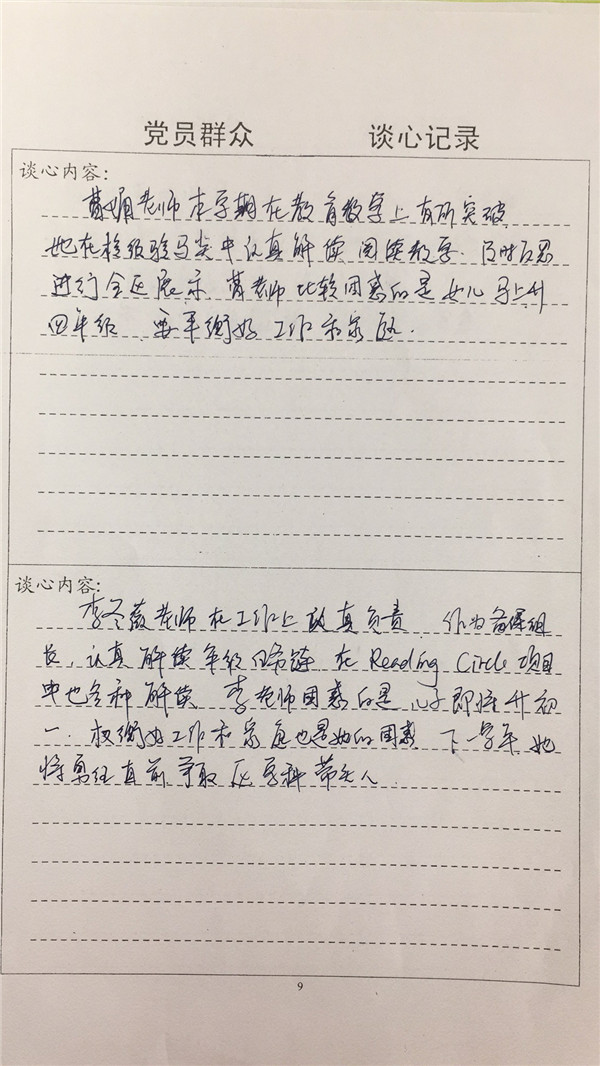 党员群众 谈心记录
谈心内容：
曹娟老师本学期在教育教学上有所突破
她在校级骏马奖中认真解读阅读教学 及时反思
进行全区展示 曹老师比较困惑的是女儿马上升
四年级 要平衡好工作和家庭.
谈心内容：
李冬薇老师在工作上认真负责 作为备课组
长，认真解读年级任务链 在 Reading Circle 项目
中也各种解读 李老师困惑的是儿子即将升初
一. 权衡好工作和家庭也是她的困惑 下一学年 她
将勇往直前争取区学科带头人.
9